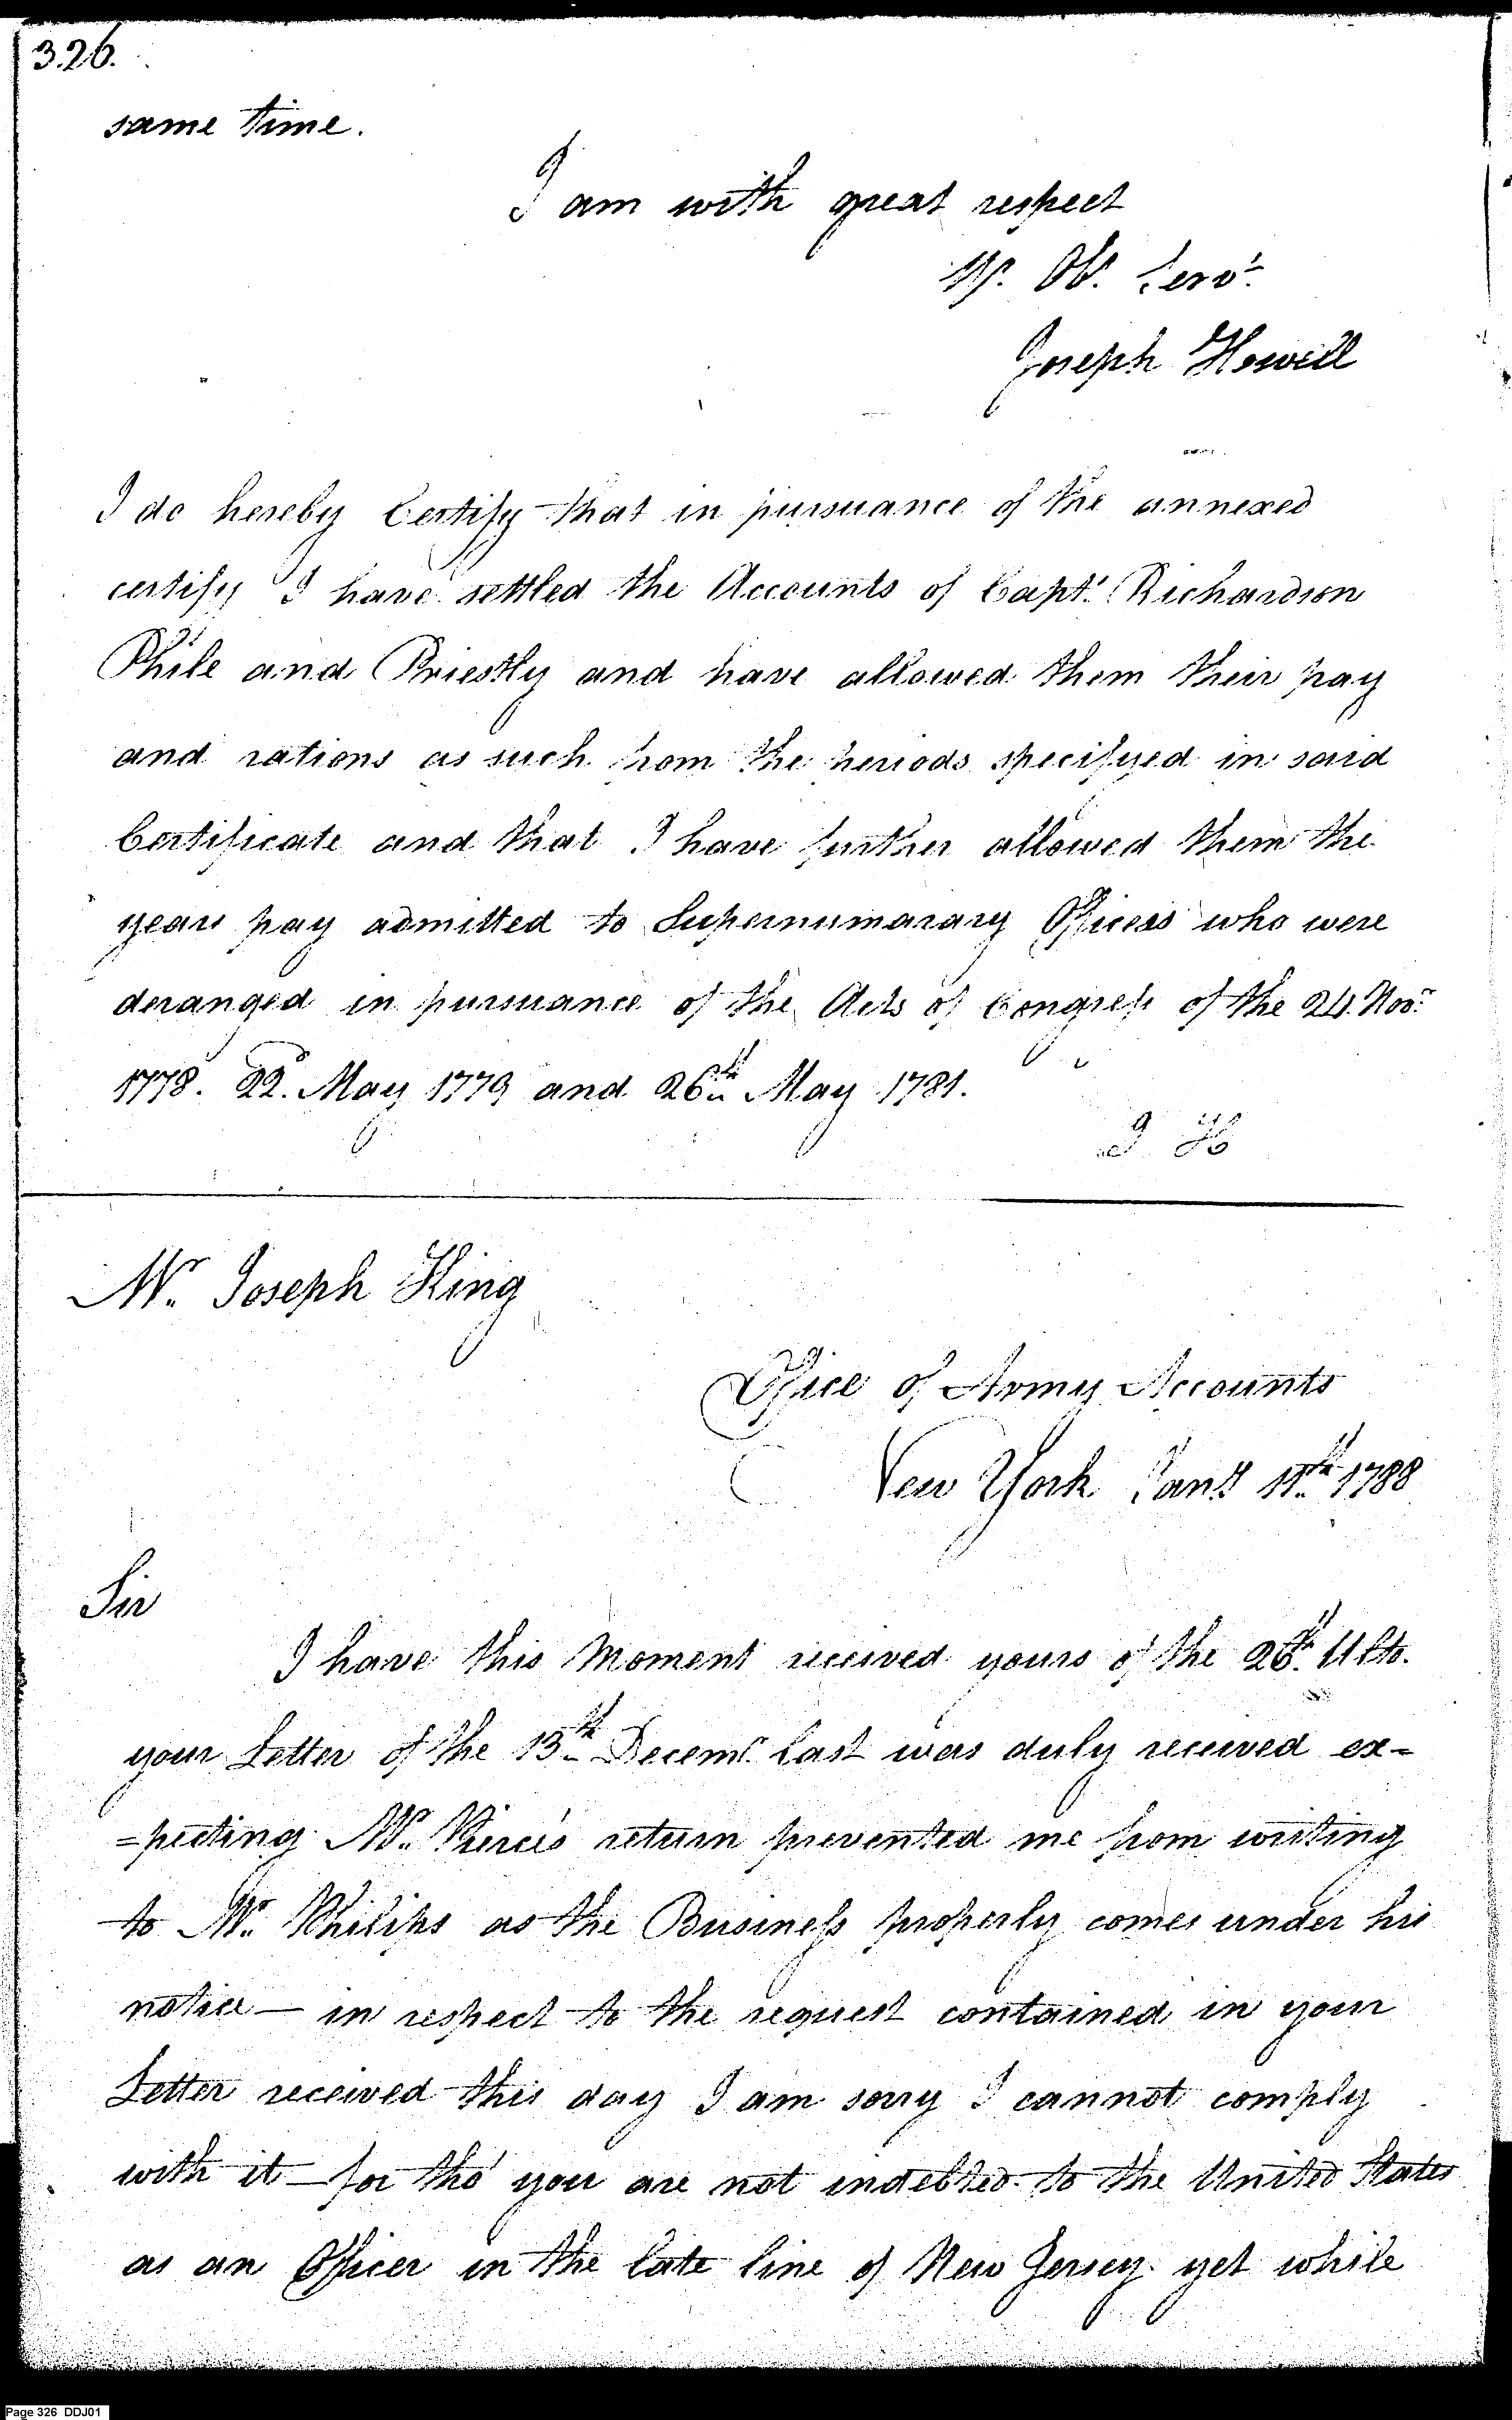 326.
same time.
I am with great respect
Yr. Ob. Servt.
Joseph Howell
I do hereby Certify that in pursuance of the annexed
certify I have settled the Accounts of Capt. Richardson
Phile and Priestly and have allowed them their pay
and rations as such from the periods specifyed in said
Certificate and that I have further allowed them the
years pay admitted to Supernumarary Officers who were
deranged in pursuance of the Acts of Congress of the 24. Novr.
1778. 22d. May 1779 and 26th May 1781.
J H
Mr. Joseph King
Office of Army Accounts
New York Jany 11th 1788
Sir
I have this Moment received yours of the 26th. Ulto.
your Letter of the 13th Decemr. last was duly received ex-
=pecting Mr. Pierce's return prevented me from writing
to Mr. Philips as the Business properly comes under his
notice — in respect to the request contained in your
Letter received this day I am sorry I cannot comply
with it — for tho' you are not indebted to the United States
as an Officer in the late line of New Jersey yet while
Page 326 DDJ01